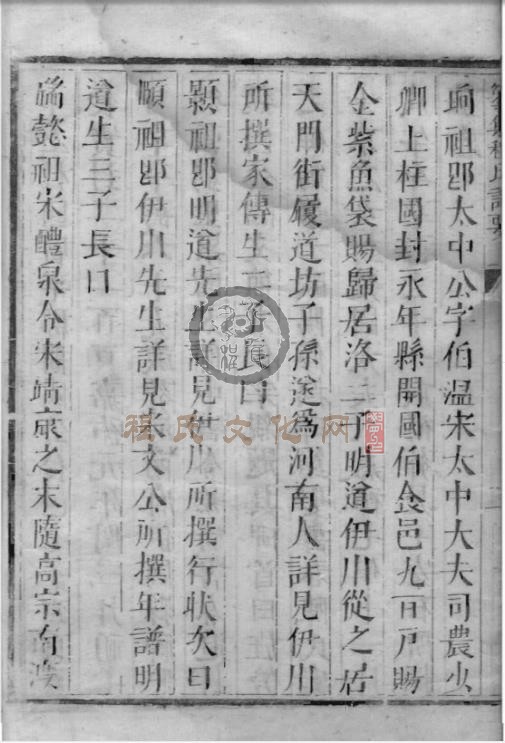 珦祖即太中公字伯温宋太中大夫司農少
卿上柱國封永年縣開國伯食邑九百戸賜
金紫魚袋賜歸居洛二子明道伊川從之居
天門街履道坊子孫遂爲河南人詳見伊川
所撰家傳生二子長曰
顥祖即明道先生詳見伊川所撰行狀次曰
頤祖即伊川先生詳見朱文公所撰年譜明
道生三子長曰
端懿祖宋醴泉令宋靖康之末隨高宗南渡
程氏文化网